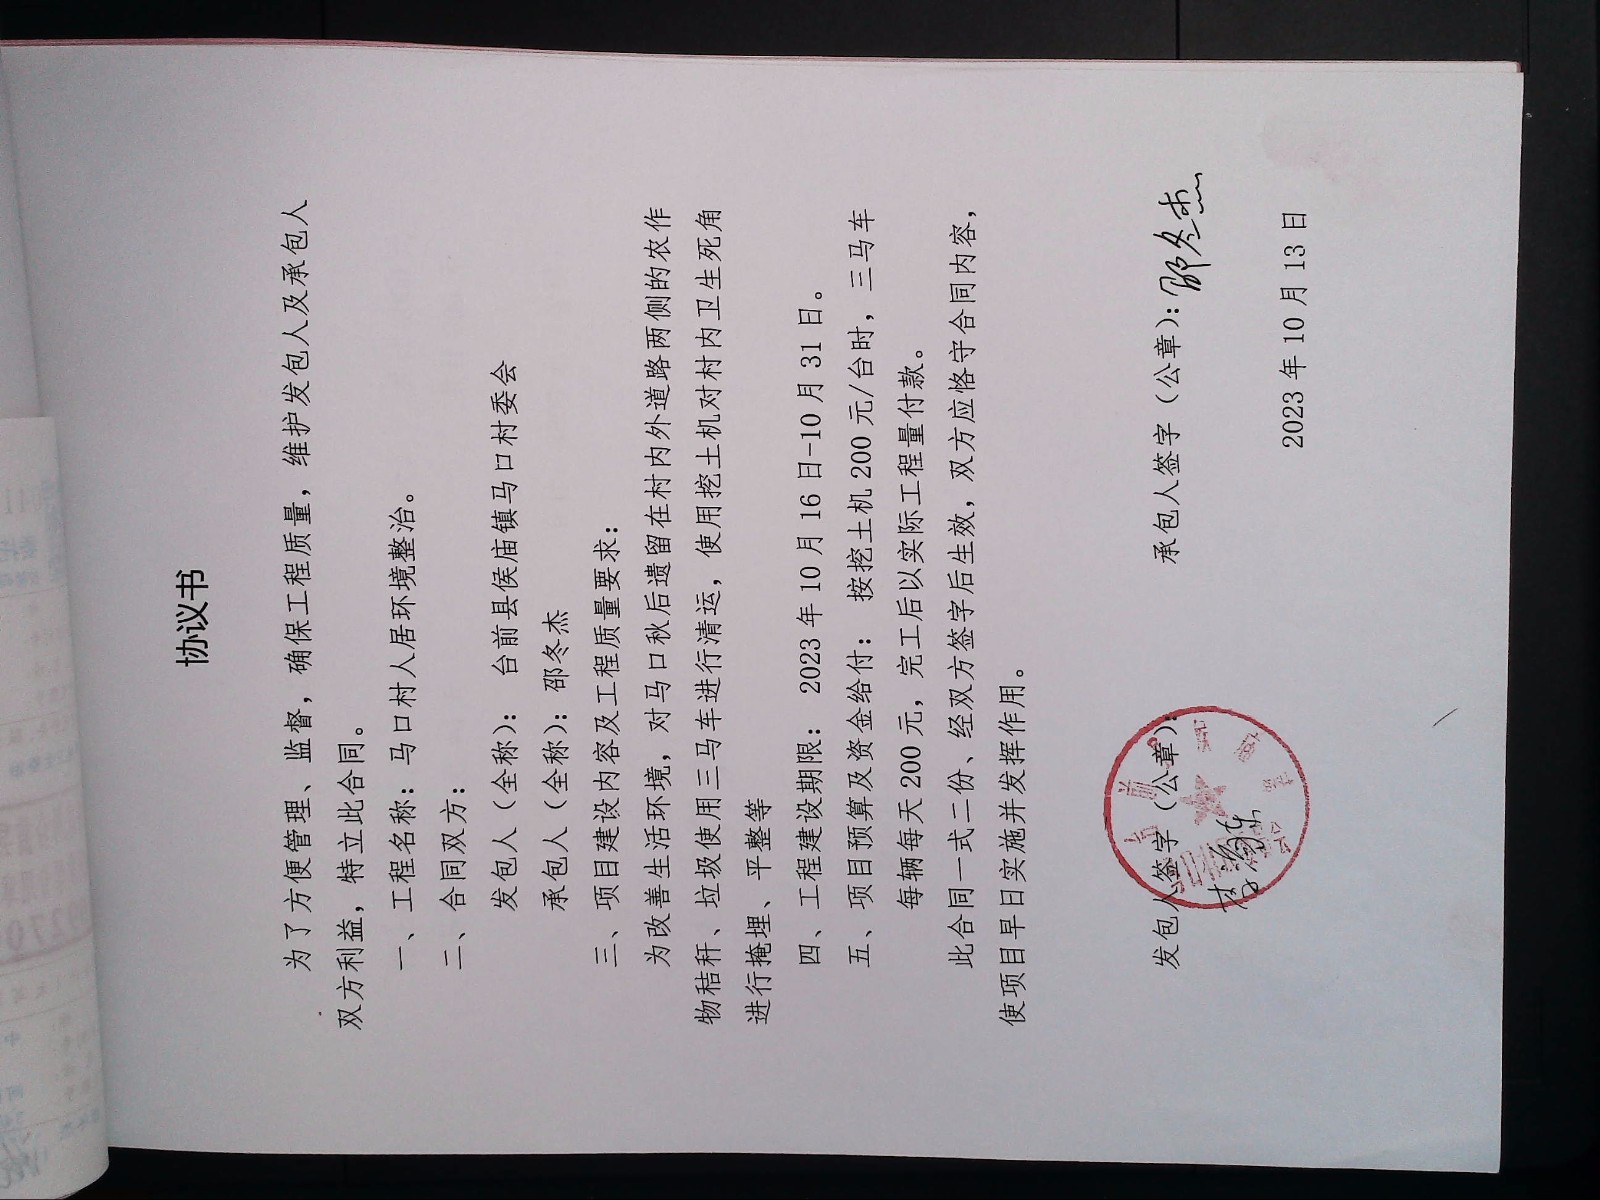 协议书
为了方便管理、监督，确保工程质量，维护发包人及承包人
双方利益，特立此合同。
一、工程名称：马口村人居环境整治。
二、合同双方：
发包人（全称）： 台前县侯庙镇马口村委会
承包人（全称）：邵冬杰
三、项目建设内容及工程质量要求：
为改善生活环境，对马口秋后遗留在村内外道路两侧的农作
物秸秆、垃圾使用三马车进行清运，使用挖土机对村内卫生死角
进行掩埋、平整等
四、工程建设期限： 2023 年 10 月 16 日-10 月 31 日。
五、项目预算及资金给付： 按挖土机 200 元/台时，三马车
每辆每天 200 元，完工后以实际工程量付款。
此合同一式二份、经双方签字后生效，双方应恪守合同内容，
使项目早日实施并发挥作用。
发包人签字（公章）： 承包人签字（公章）：邵冬杰
2023 年 10 月 13 日